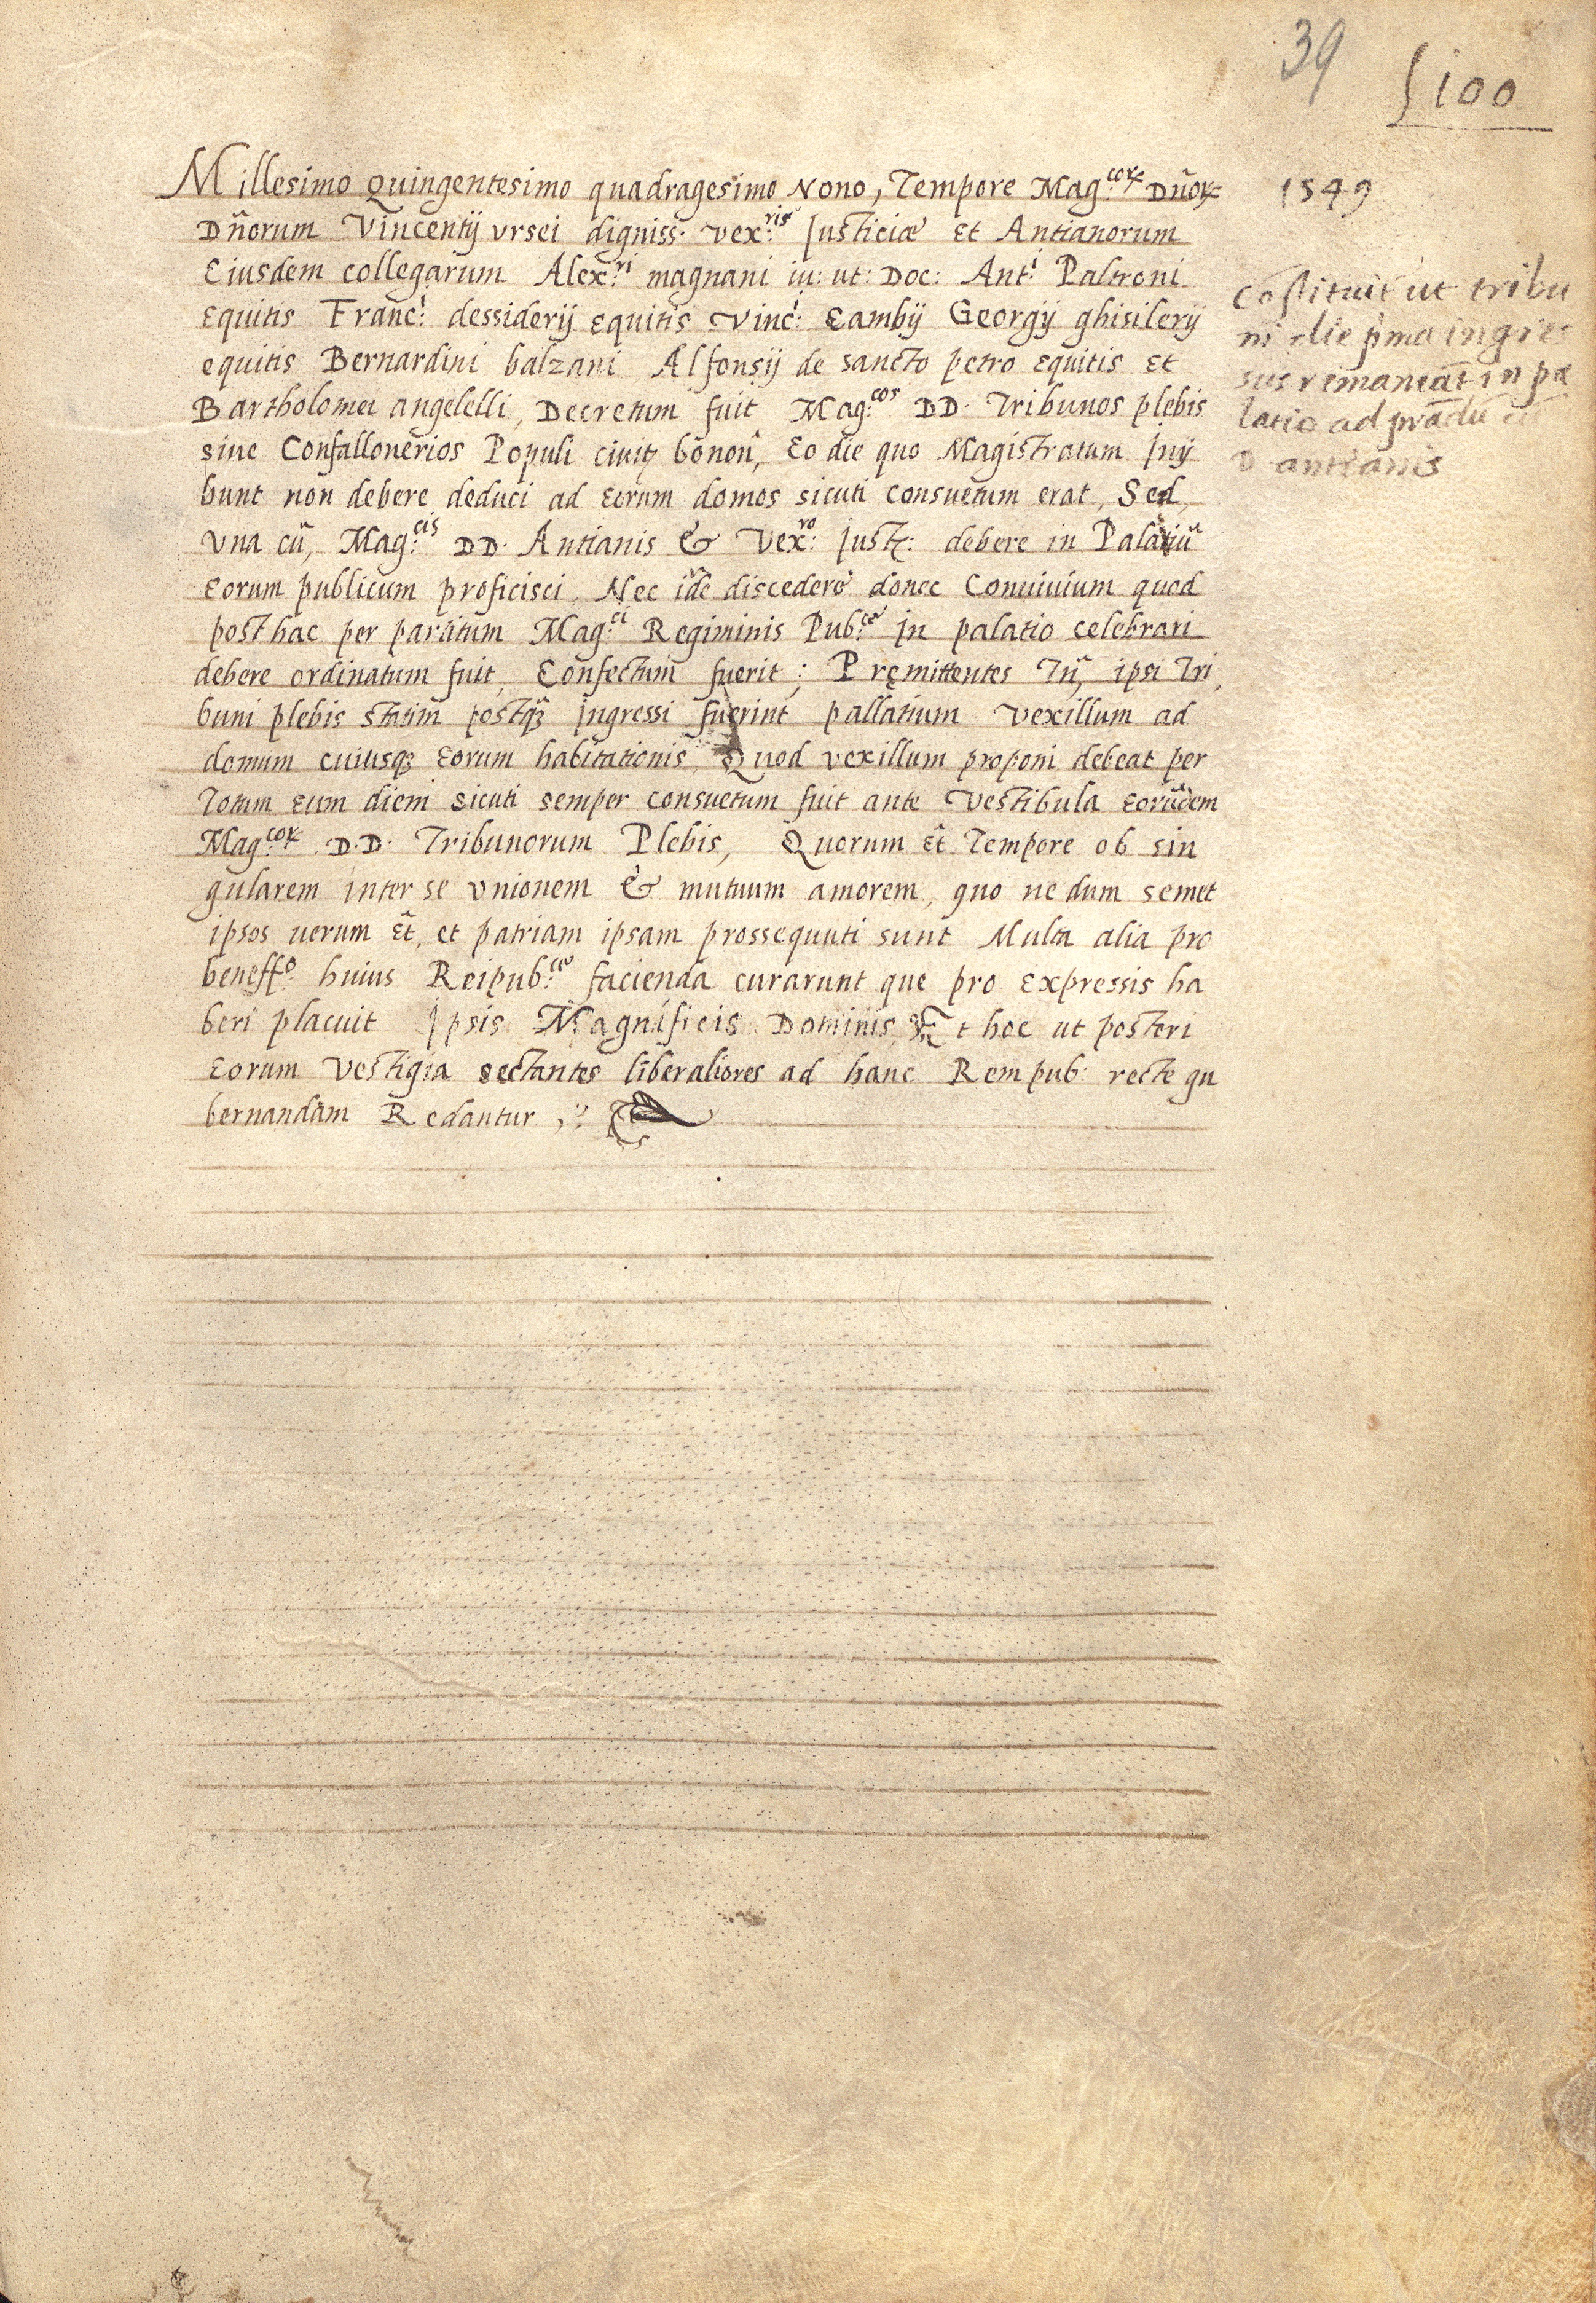 39
§ 100
Millesimo Quingentesimo quadragesimo Nono, Tempore Mag:coꝝ Dñoꝝ
1549
Dñorum Vincentij Vrsei digniss. vex:ris Justiciæ Et Antianorum
Eiusdem collegarum Alex:ri magnani iu: ut: Doc: Ant:i Paltroni
Equitis Franc:i dessiderij Equitis Vinc:i Cambij Georgij ghisilerij
equitis Bernardini balzani Alfonsij de sancto petro Equitis Et
Bartholomei angelelli, Decretum fuit Mag:cos DD. Tribunos plebis
siue Confallonerios Populi ciuitꝭ bonoñ, Eo die quo Magistratum Jnij
bunt non debere deduci ad Eorum domos sicuti consuetum erat, Sed,
Vna cũ, Mag:cis DD. Antianis & Vex:ro Justꝭ: debere in Palatiũ
Eorum publicum proficisci, Nec ĩde discedere donec Conuiuium quod
posthac per partitum Mag:ci Regiminis Pub:ce in palatio celebrari
debere ordinatum fuit, Confectum fuerit; Pręmittentes Tñ, ipsi Tri,
buni plebis statim postqꝫ ingressi fuerint pallatium vexillum ad
domum cuiusqꝫ Eorum habitationis, Quod vexillum proponi debeat per
Totum Eum diem sicuti semper consuetum fuit ante Vestibula Eorũdem
Mag:coꝝ D.D. Tribunorum Plebis, Quorum Et̃ Tempore ob sin
gularem inter se Vnionem & mutuum amorem, quo ne dum semet
ipsos uerum Et̃, et patriam ipsam prossequuti sunt Multa alia pro
beneff:o huius Reipub:ce facienda curarunt que pro Expressis ha
beri placuit Jpsis Magnificis Dominis, Et hoc ut posteri
Eorum Vestigia sectantes liberaliores ad hanc Rempub: recte gu
bernandam Redantur,
Cõstituit ut tribu
ni die pima ingres
sus remaneãt in pa
latio ad prãdiũ cũ
D antianis